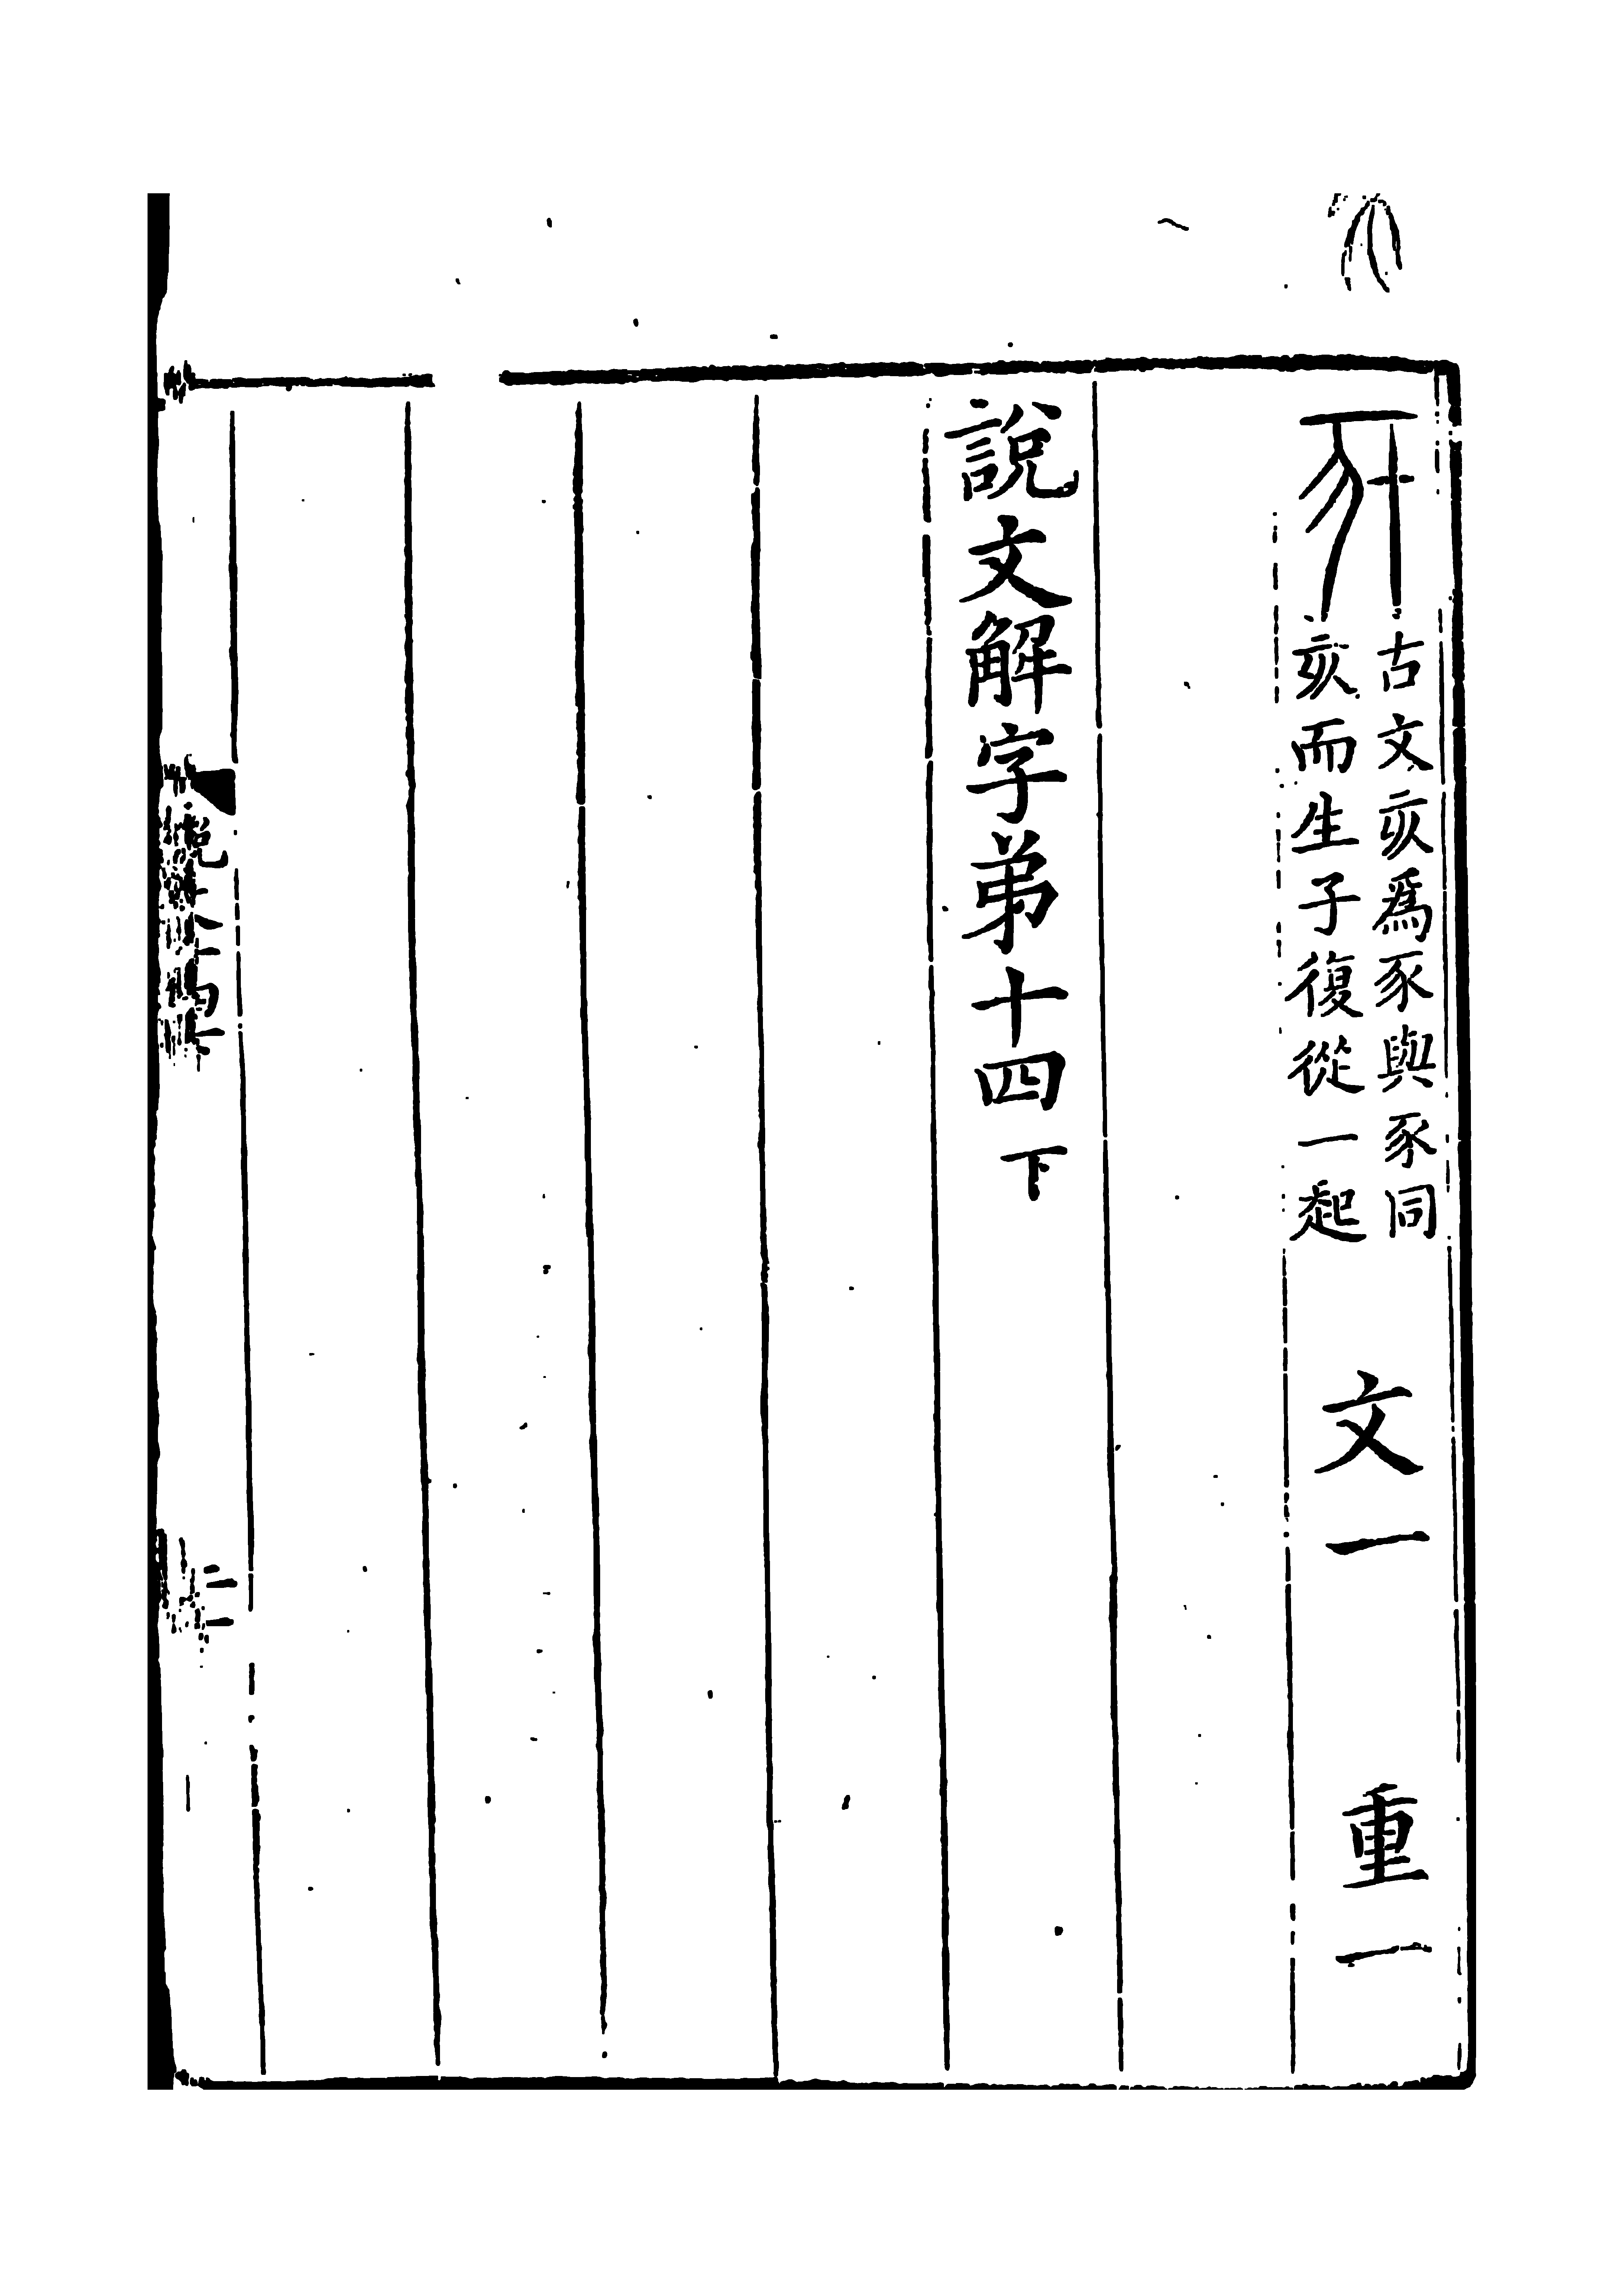 古文亥爲豕與豕同
亥而生子復從一起
文一 重一
說文解字弟十四下